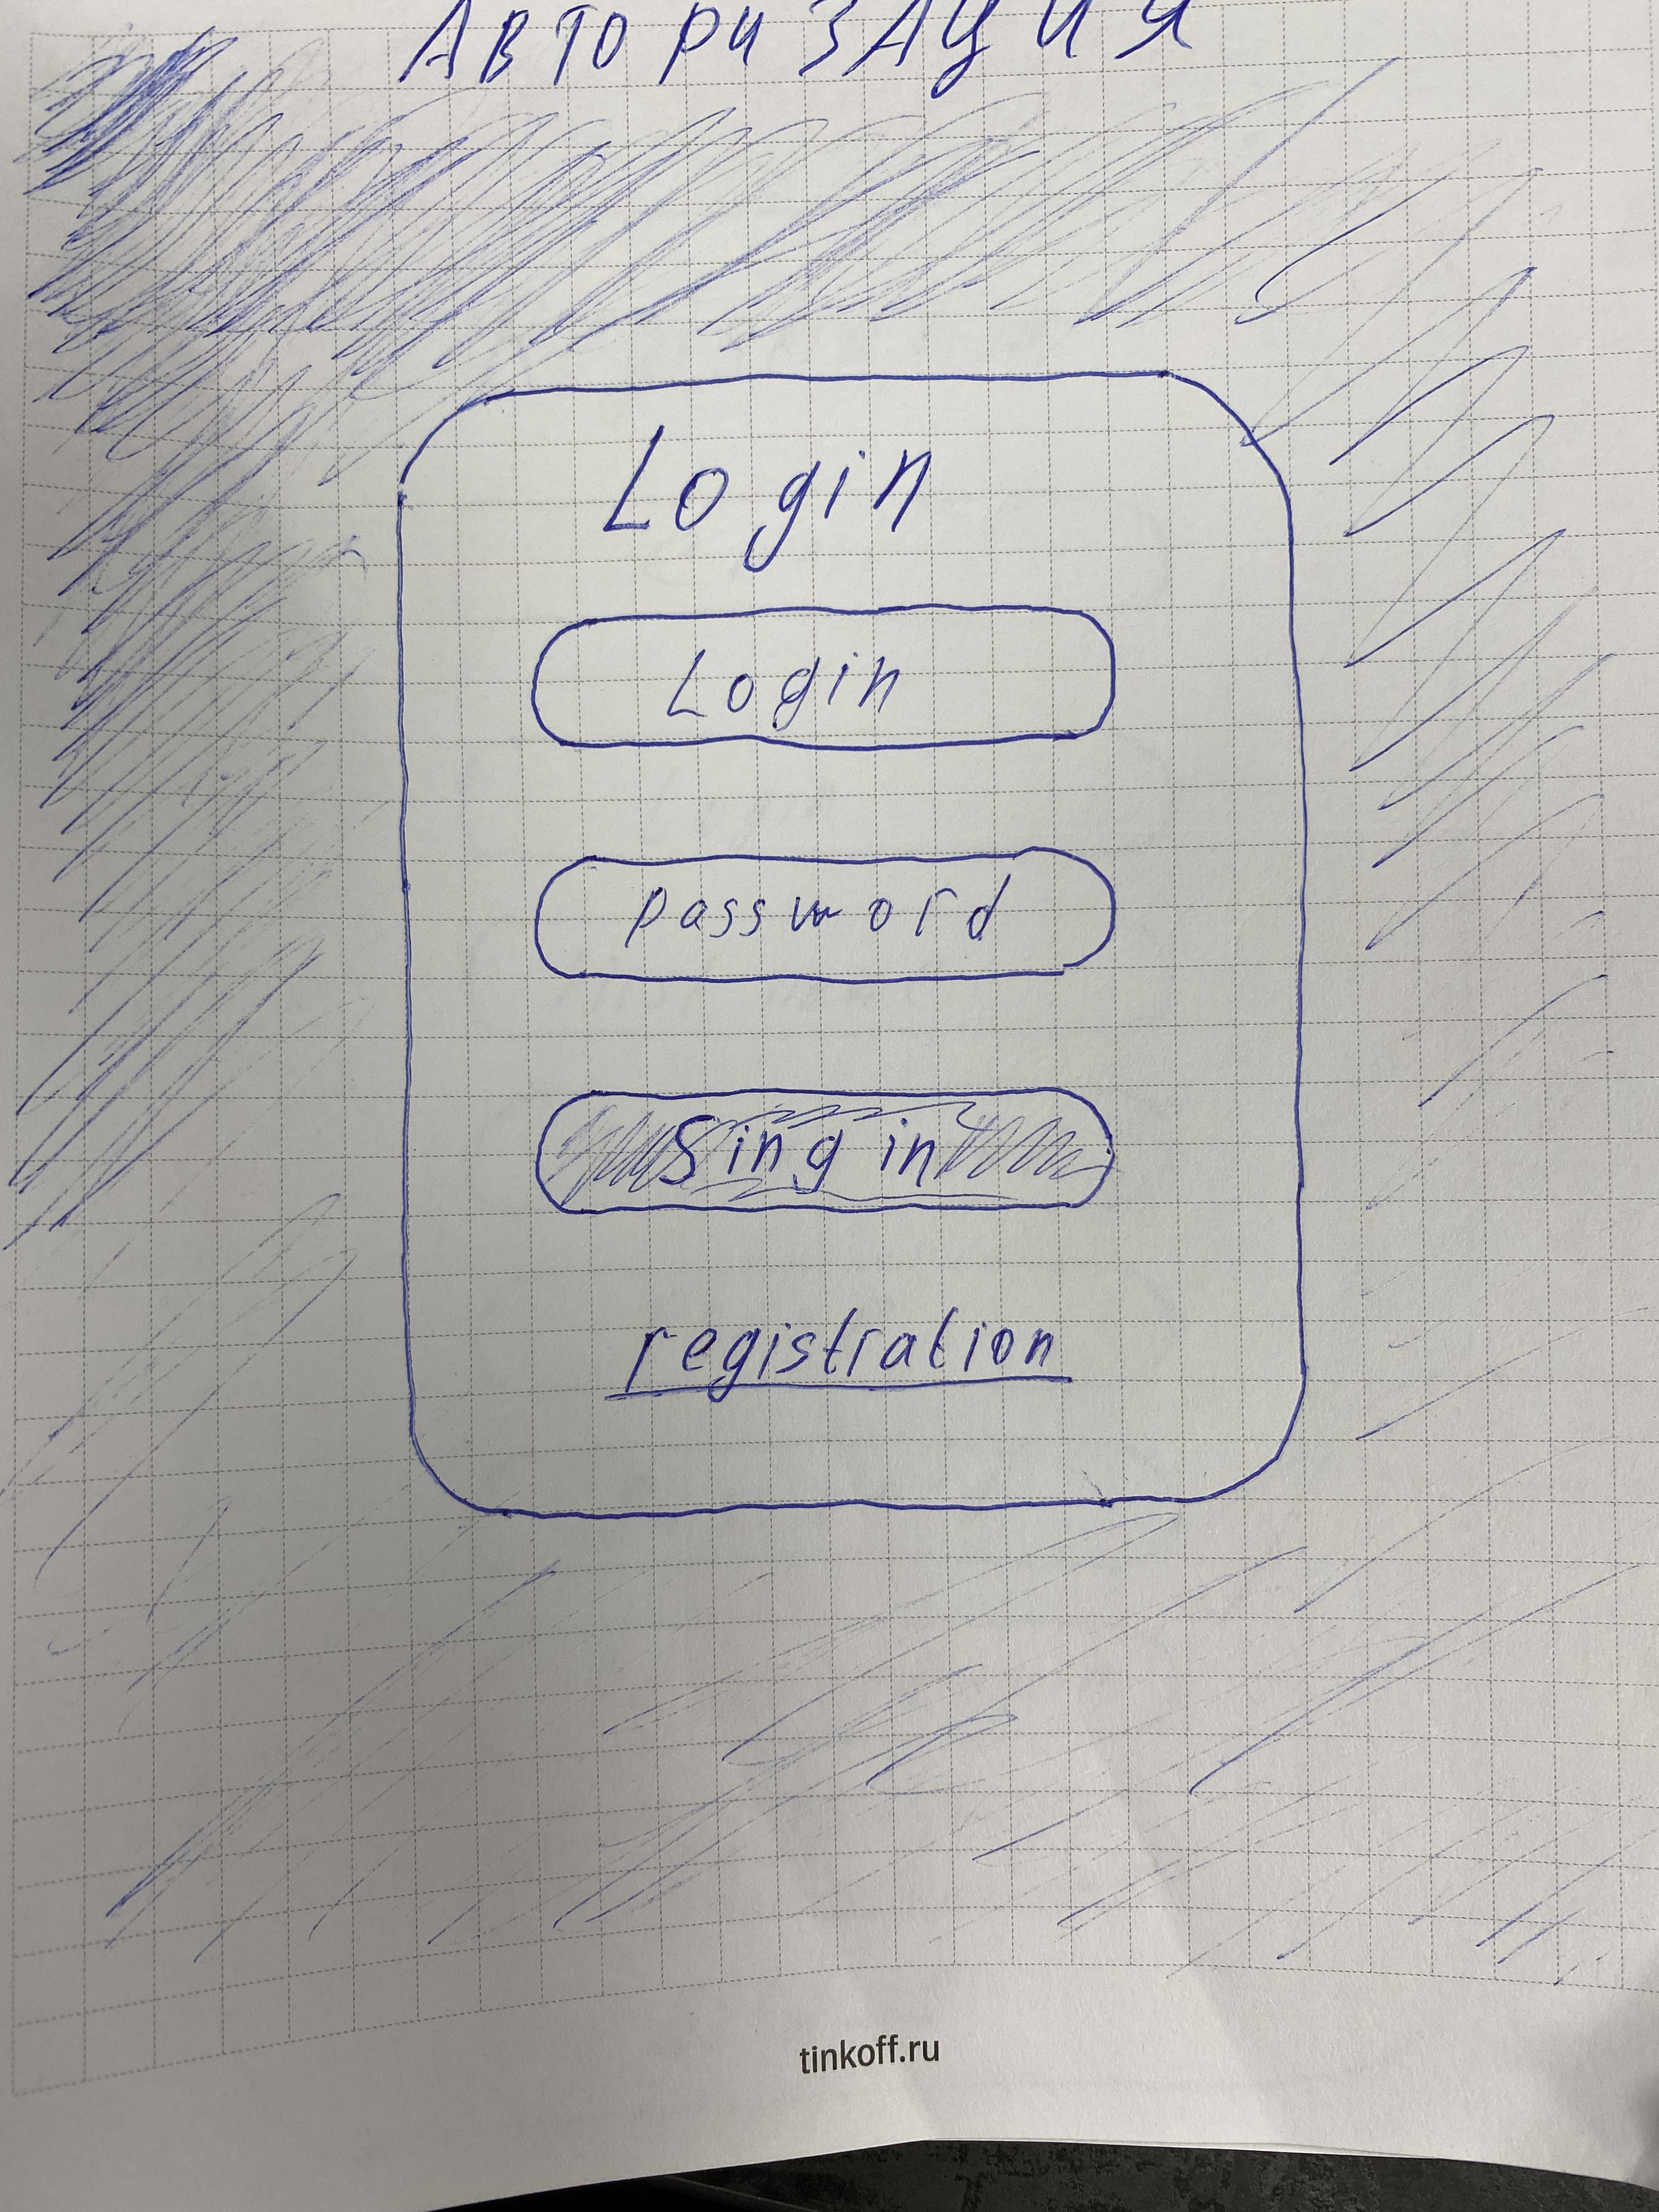 Авторизация
Login
Login
password
Sing in
registration
tinkoff.ru